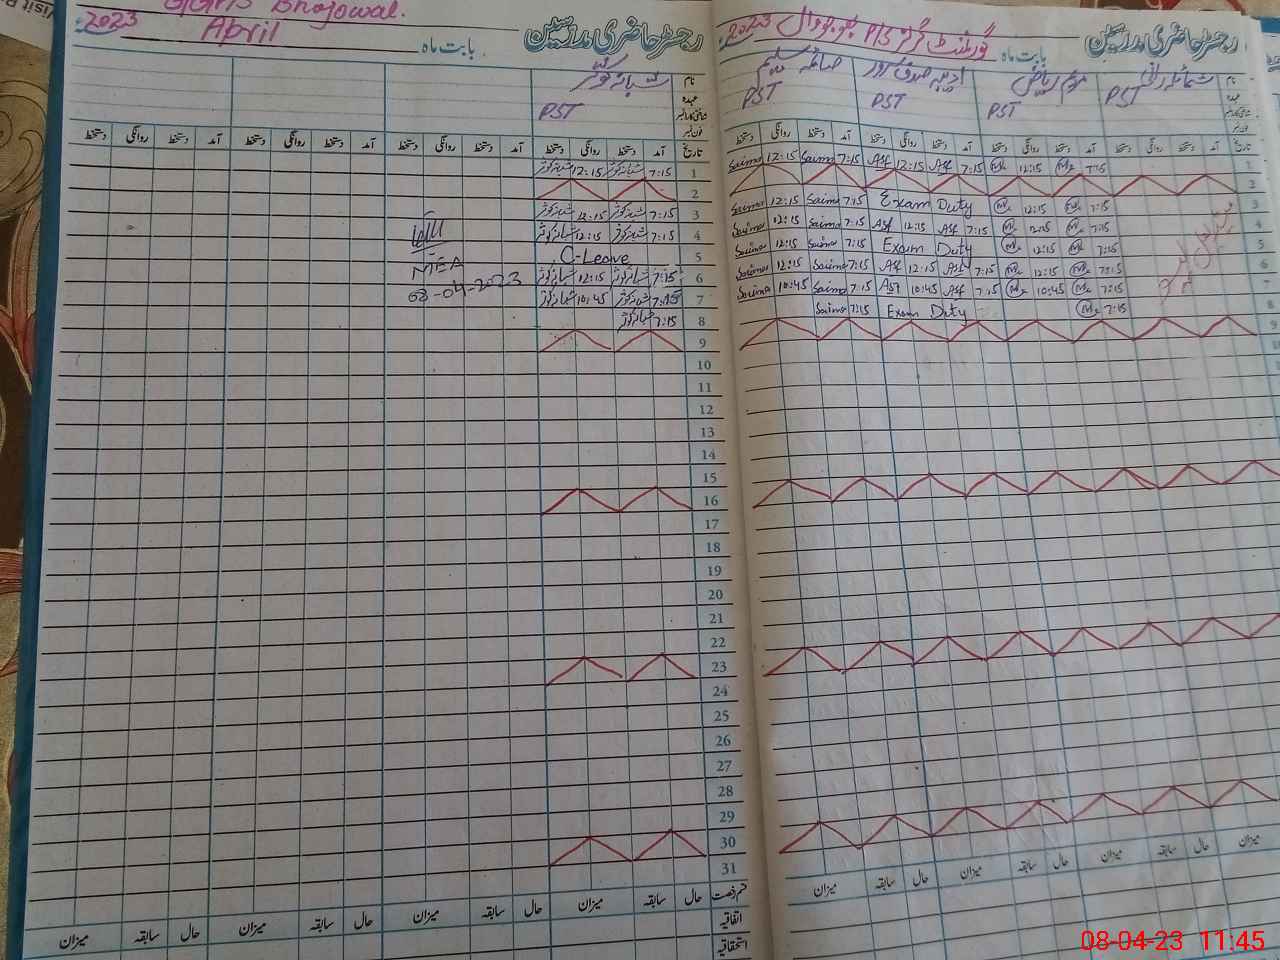 GGPS Bhojowal.
2023 April بابت ماہ رجسٹر حاضری مدرسین
نام شبانہ کوثر
عہدہ PST
شناختی کارڈ نمبر
فون نمبر
تاریخ آمد دستخط روانگی دستخط آمد دستخط روانگی دستخط آمد دستخط روانگی دستخط آمد دستخط روانگی دستخط
1 7:15 شبانہ کوثر 12:15 شبانہ کوثر
2
3 7:15 شبانہ کوثر 12:15 شبانہ کوثر
4 7:15 شبانہ کوثر 12:15 شبانہ کوثر
5 C-Leave
MEA
6 7:15 شبانہ کوثر 12:15 شبانہ کوثر
08-04-2023
7 7:15 شبانہ کوثر 10:45 شبانہ کوثر
8 7:15 شبانہ کوثر
9
10
11
12
13
14
15
16
17
18
19
20
21
22
23
24
25
26
27
28
29
30
31
قسم رخصت حال سابقہ میزان حال سابقہ میزان حال سابقہ میزان حال سابقہ میزان
اتفاقیہ
استحقاقیہ
2023 گورنمنٹ گرلز P/S بھوجووال بابت ماہ رجسٹر حاضری مدرسین
نام شمائلہ رانی مریم ریاض صائمہ سلیم
عہدہ PST PST PST PST
شناختی کارڈ نمبر
فون نمبر
تاریخ آمد دستخط روانگی دستخط آمد دستخط روانگی دستخط آمد دستخط روانگی دستخط آمد دستخط روانگی دستخط
Saima 12:15 Saima 7:15 Asf 12:15 Asf 7:15 12:15 7:15 1
2
Saima 12:15 Saima 7:15 Exam Duty 12:15 7:15 3
Saima 12:15 Saima 7:15 Asf 12:15 Asf 7:15 12:15 7:15 4
Saima 12:15 Saima 7:15 Exam Duty 12:15 7:15 5
Saima 12:15 Saima 7:15 Asf 12:15 Asf 7:15 12:15 7:15 6
Saima 10:45 Saima 7:15 Asf 10:45 Asf 7:15 10:45 7:15 7
Saima 7:15 Exam Duty 7:15 8
9
میزان حال سابقہ میزان حال سابقہ میزان حال سابقہ میزان
08-04-23 11:45